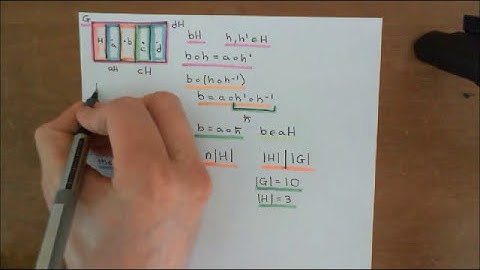 G dH
H a b c d
aH cH
bH h, h' ∈ H
b∘h = a∘h'
b∘(h∘h⁻¹)
b = a∘h'∘h⁻¹
b = a∘h̄ b∈aH
n|H| |H| | |G|
|G| = 10
|H| = 3